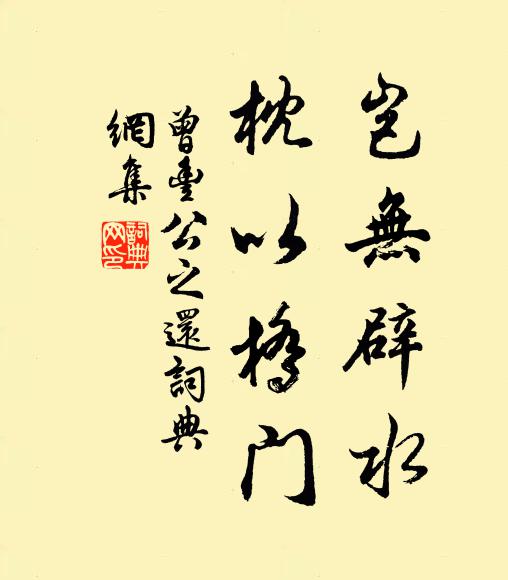 豈無辟水
枕以橋門
曾豐公之還詞典
網集
詞典
网印